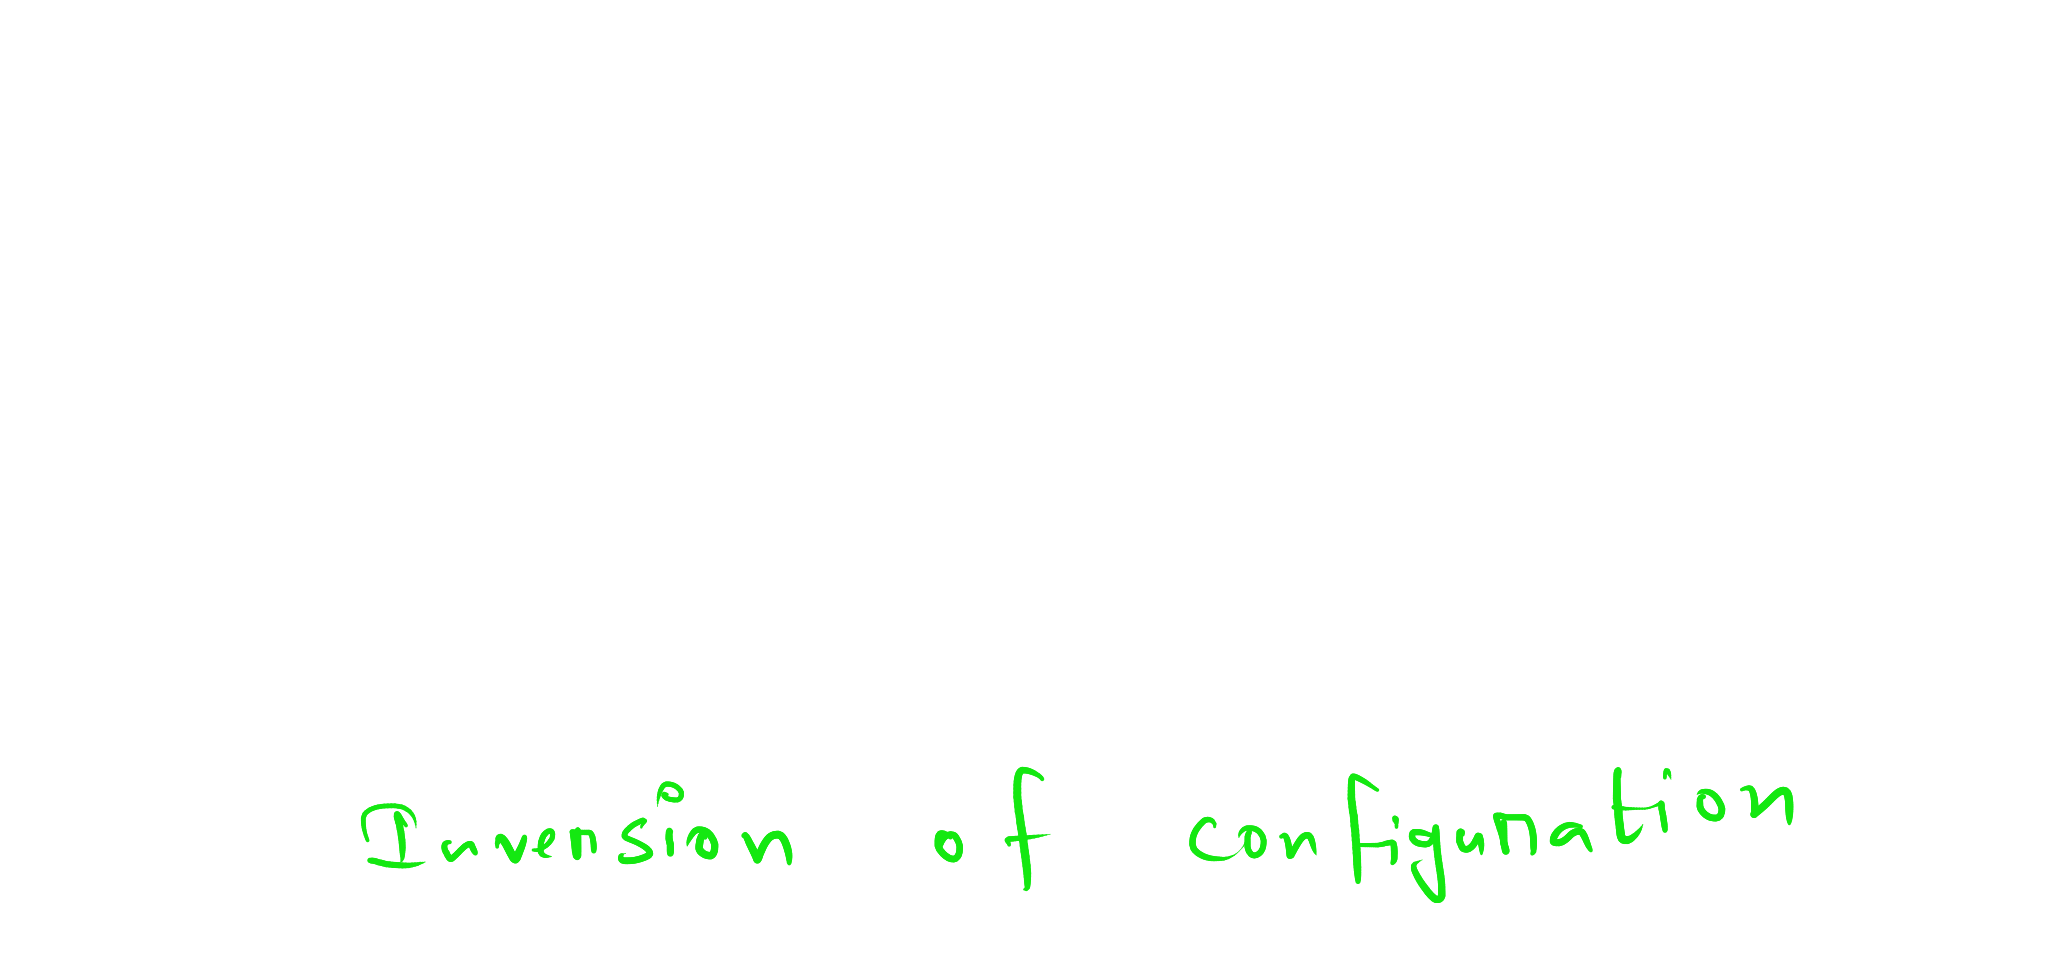 Inversion of configuration